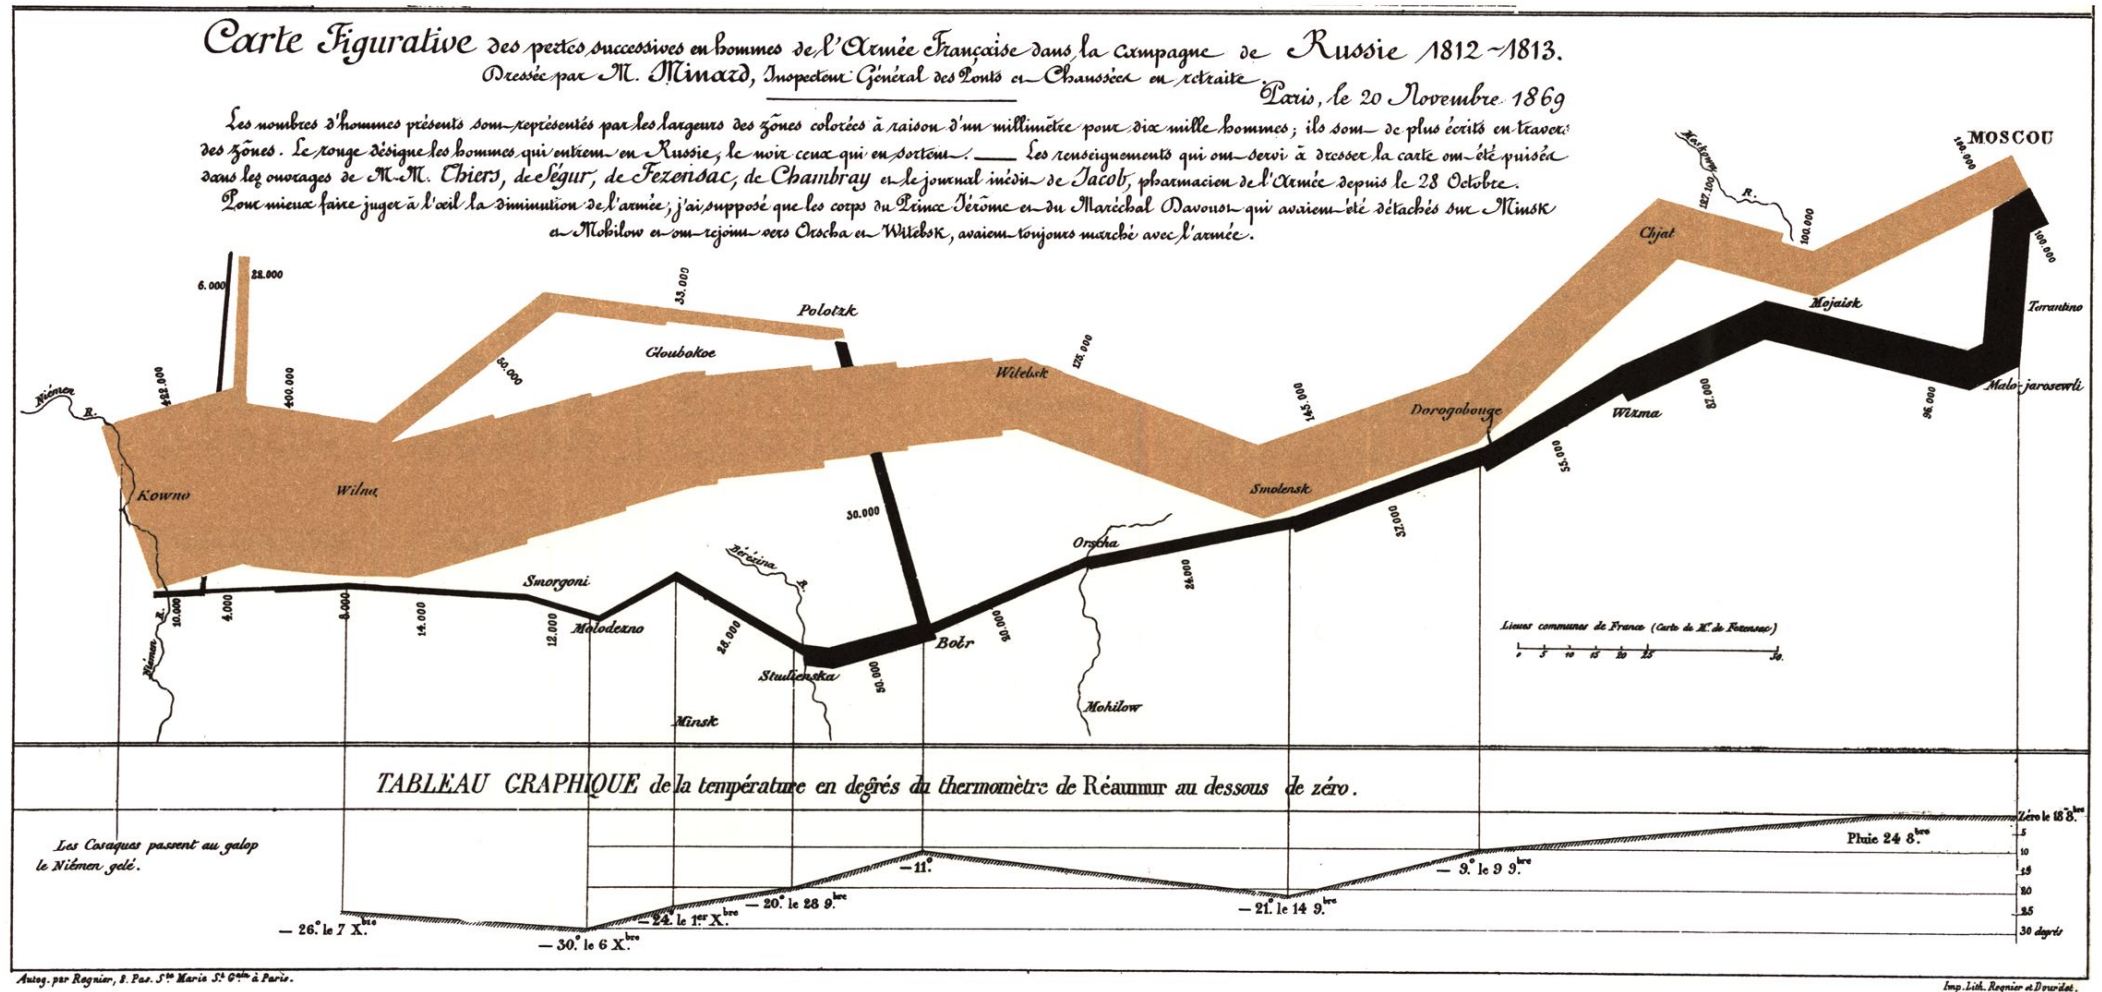 Carte Figurative des pertes successives en hommes de l'Armée Française dans la campagne de Russie 1812~1813.
Dressée par M. Minard, Inspecteur Général des Ponts et Chaussées en retraite.
Paris, le 20 Novembre 1869
Les nombres d'hommes présents sont représentés par les largeurs des zônes colorées à raison d'un millimètre pour dix mille hommes; ils sont de plus écrits en travers
des zônes. Le rouge désigne les hommes qui entrent en Russie, le noir ceux qui en sortent. — Les renseignements qui ont servi à dresser la carte ont été puisés
dans les ouvrages de M.M. Thiers, de Ségur, de Fezensac, de Chambray et le journal inédit de Jacob, pharmacien de l'Armée depuis le 28 Octobre.
Pour mieux faire juger à l'œil la diminution de l'armée, j'ai supposé que les corps du Prince Jérôme et du Maréchal Davoust qui avaient été détachés sur Minsk
et Mohilow et ont rejoint vers Orscha et Witebsk, avaient toujours marché avec l'armée.
MOSCOU
100.000
Moskowa R.
127.100
100.000
Chjat
Mojaisk
100.000
Tarantino
Malo-jarosewli
6.000
22.000
33.000
Polotzk
Gloubokoe
60.000
422.000
400.000
Niémen R.
Witebsk
175.000
145.000
Dorogobouge
Wizma
87.000
96.000
55.000
Kowno
Wilna
Smolensk
30.000
37.000
Bérézina R.
Orscha
24.000
Smorgoni
10.000
4.000
8.000
14.000
12.000
Molodezno
28.000
Studienska
50.000
Bobr
20.000
Niémen R.
Minsk
Mohilow
Lieues communes de France (Carte de M. de Fezensac)
0 5 10 15 20 25 50.
TABLEAU GRAPHIQUE de la température en degrés du thermomètre de Réaumur au dessous de zéro.
Les Cosaques passent au galop
le Niémen gelé.
Zéro le 18 8.bre
5
10
15
20
25
30 degrés
Pluie 24 8.bre
— 9.° le 9 9.bre
— 21.° le 14 9.bre
— 11.°
— 20.° le 28 9.bre
— 24.° le 1.er X.bre
— 30.° le 6 X.bre
— 26.° le 7 X.bre
Autog. par Regnier, 8. Pas. S.te Marie S.t G.ain à Paris.
Imp. Lith. Regnier et Dourdet.